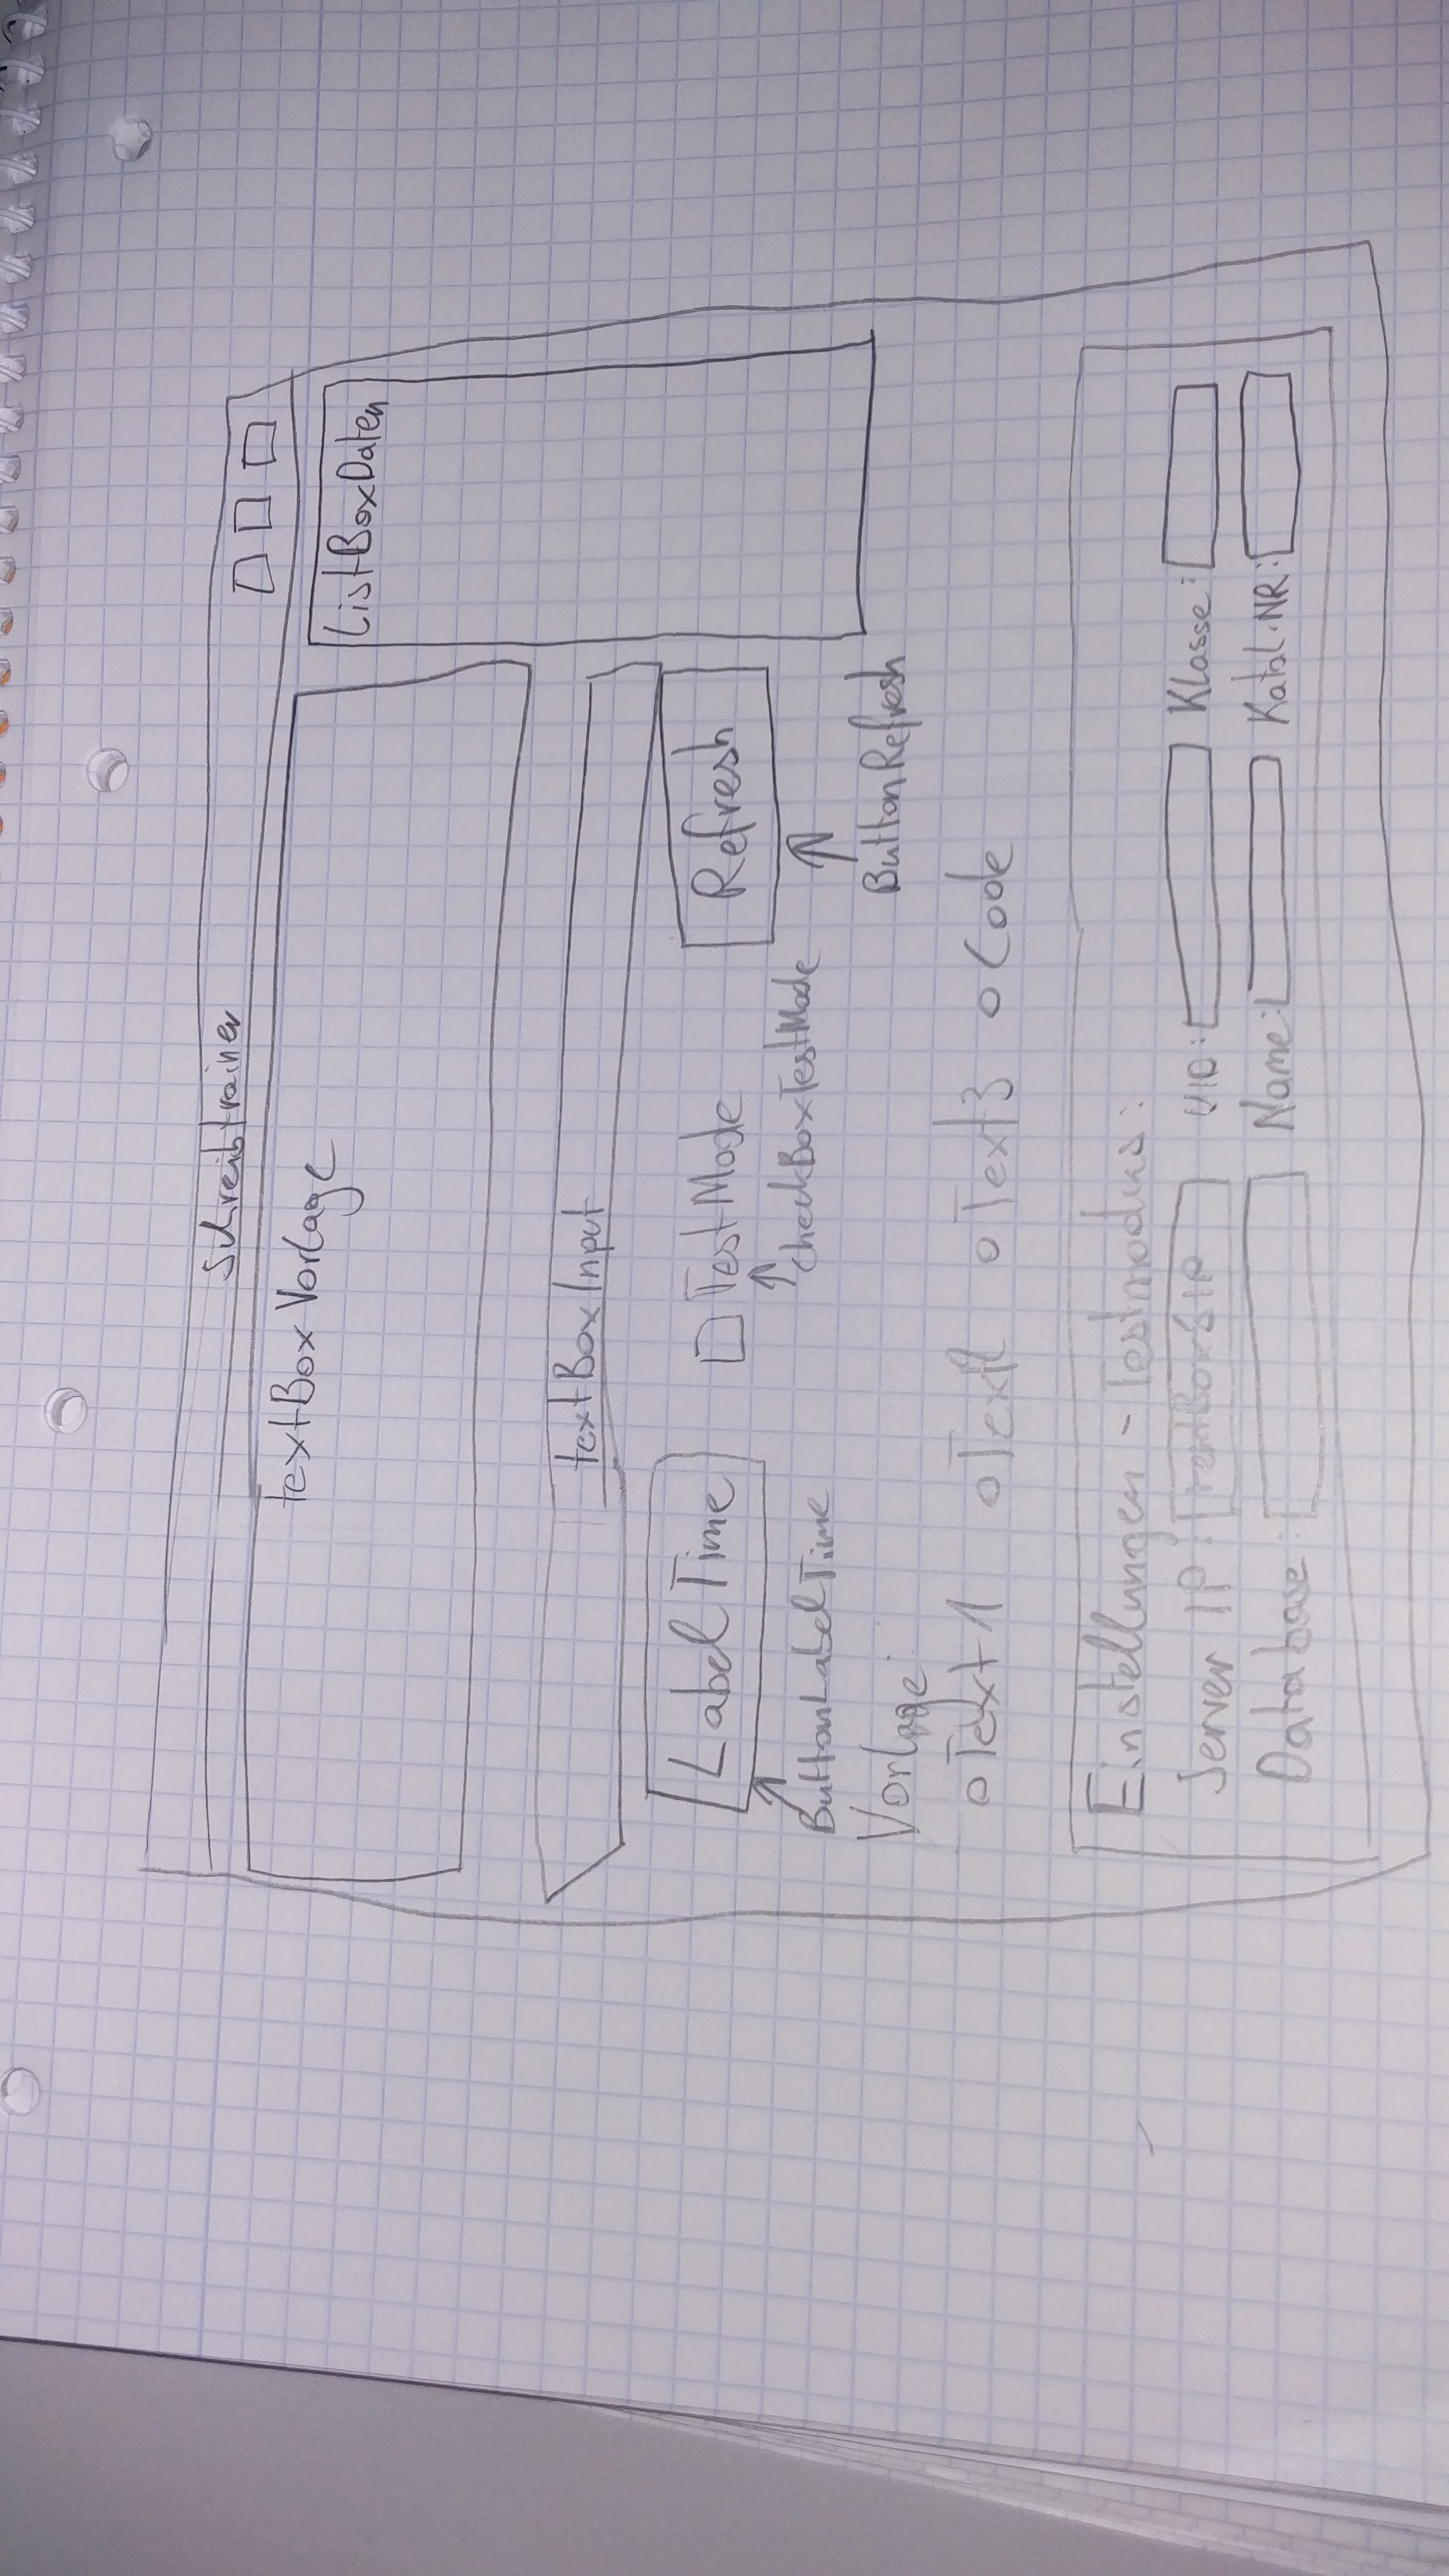 Schreibtrainer
textBoxVorlage
ListBoxDaten
textBoxInput
LabelTime
TestMode
Refresh
ButtonLabelTime
checkBoxTestMode
ButtonRefresh
Vorlage:
Text1 Text2 Text3 Code
Einstellungen - Testmodus:
Server IP: textBoxSIP UID: Klasse:
Database: Name: Katal.NR: